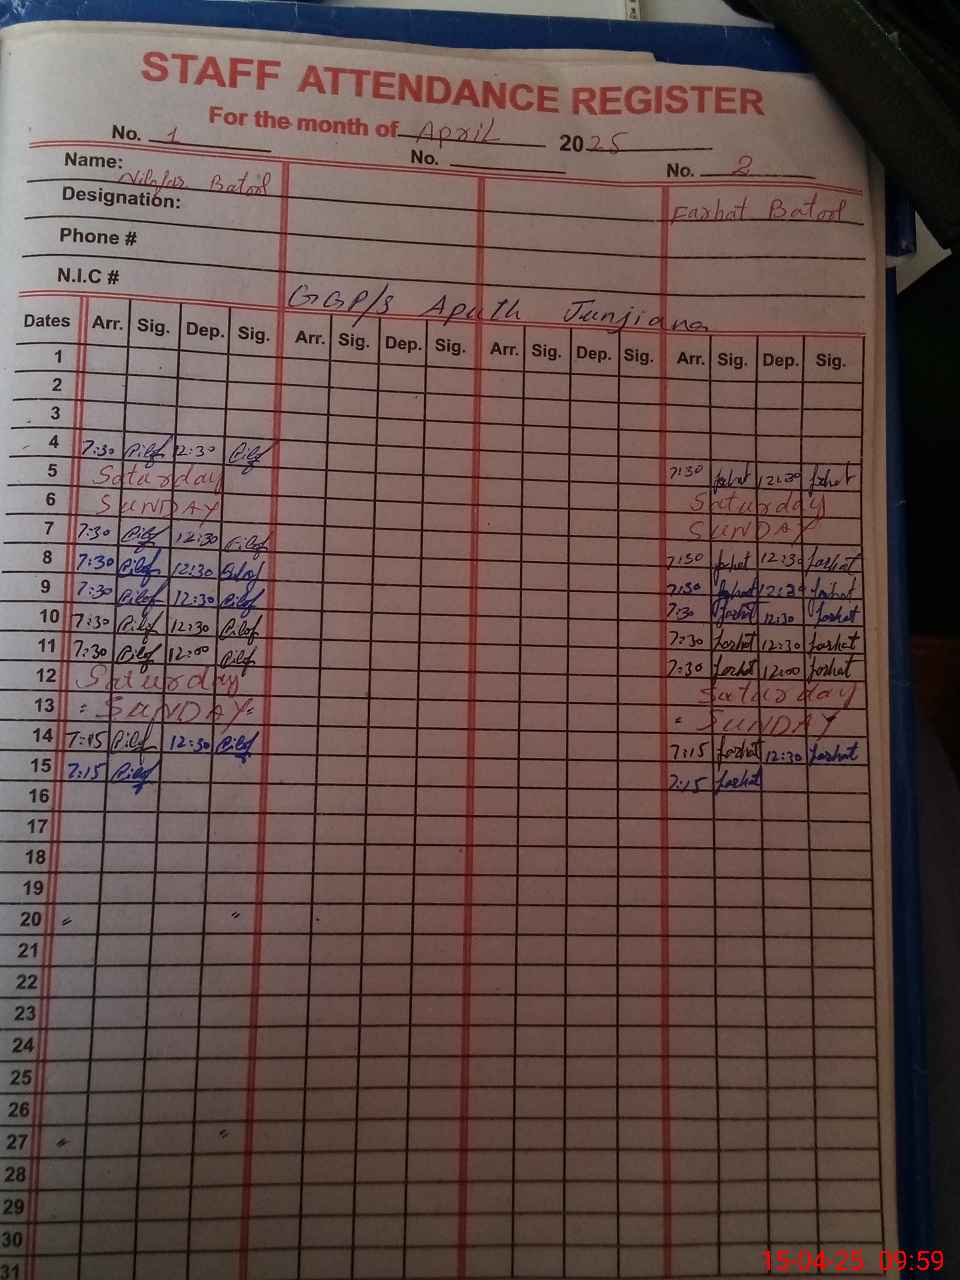 STAFF ATTENDANCE REGISTER
For the month of April 2025
No. 1 No. No. 2
Name: Nilofar Batool Farhat Batool
Designation:
Phone #
N.I.C #
GGP/S Junjiana
Dates Arr. Sig. Dep. Sig. Arr. Sig. Dep. Sig. Arr. Sig. Dep. Sig. Arr. Sig. Dep. Sig.
1
2
3
4 7:30 12:30 7:30 farhat 12:30 farhat
5 Saturday Saturday
6 SUNDAY SUNDAY
7 7:30 12:30 7:30 farhat 12:30 farhat
8 7:30 12:30 7:30 farhat 12:30 farhat
9 7:30 12:30 7:30 farhat 12:30 farhat
10 7:30 12:30 7:30 farhat 12:30 farhat
11 7:30 12:00 7:30 farhat 12:00 farhat
12 Saturday Saturday
13 SUNDAY SUNDAY
14 12:30 7:15 farhat 12:30 farhat
15 7:15 7:15 farhat
16
17
18
19
20
21
22
23
24
25
26
27
28
29
30
31
15-04-25 09:59